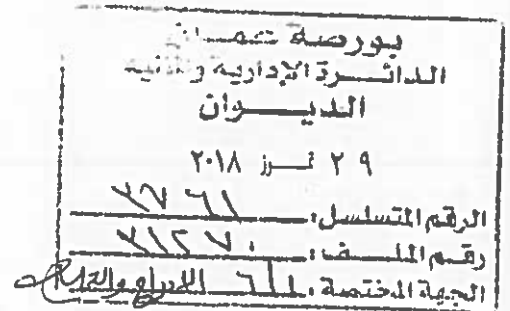 بورصة عمان
الدائرة الإدارية والمالية
الديوان
٢٩ تموز ٢٠١٨
الرقم المتسلسل: ٣٧٦١
رقم الملف: ٣١٢٧٠
الجهة المختصة: الإدراج